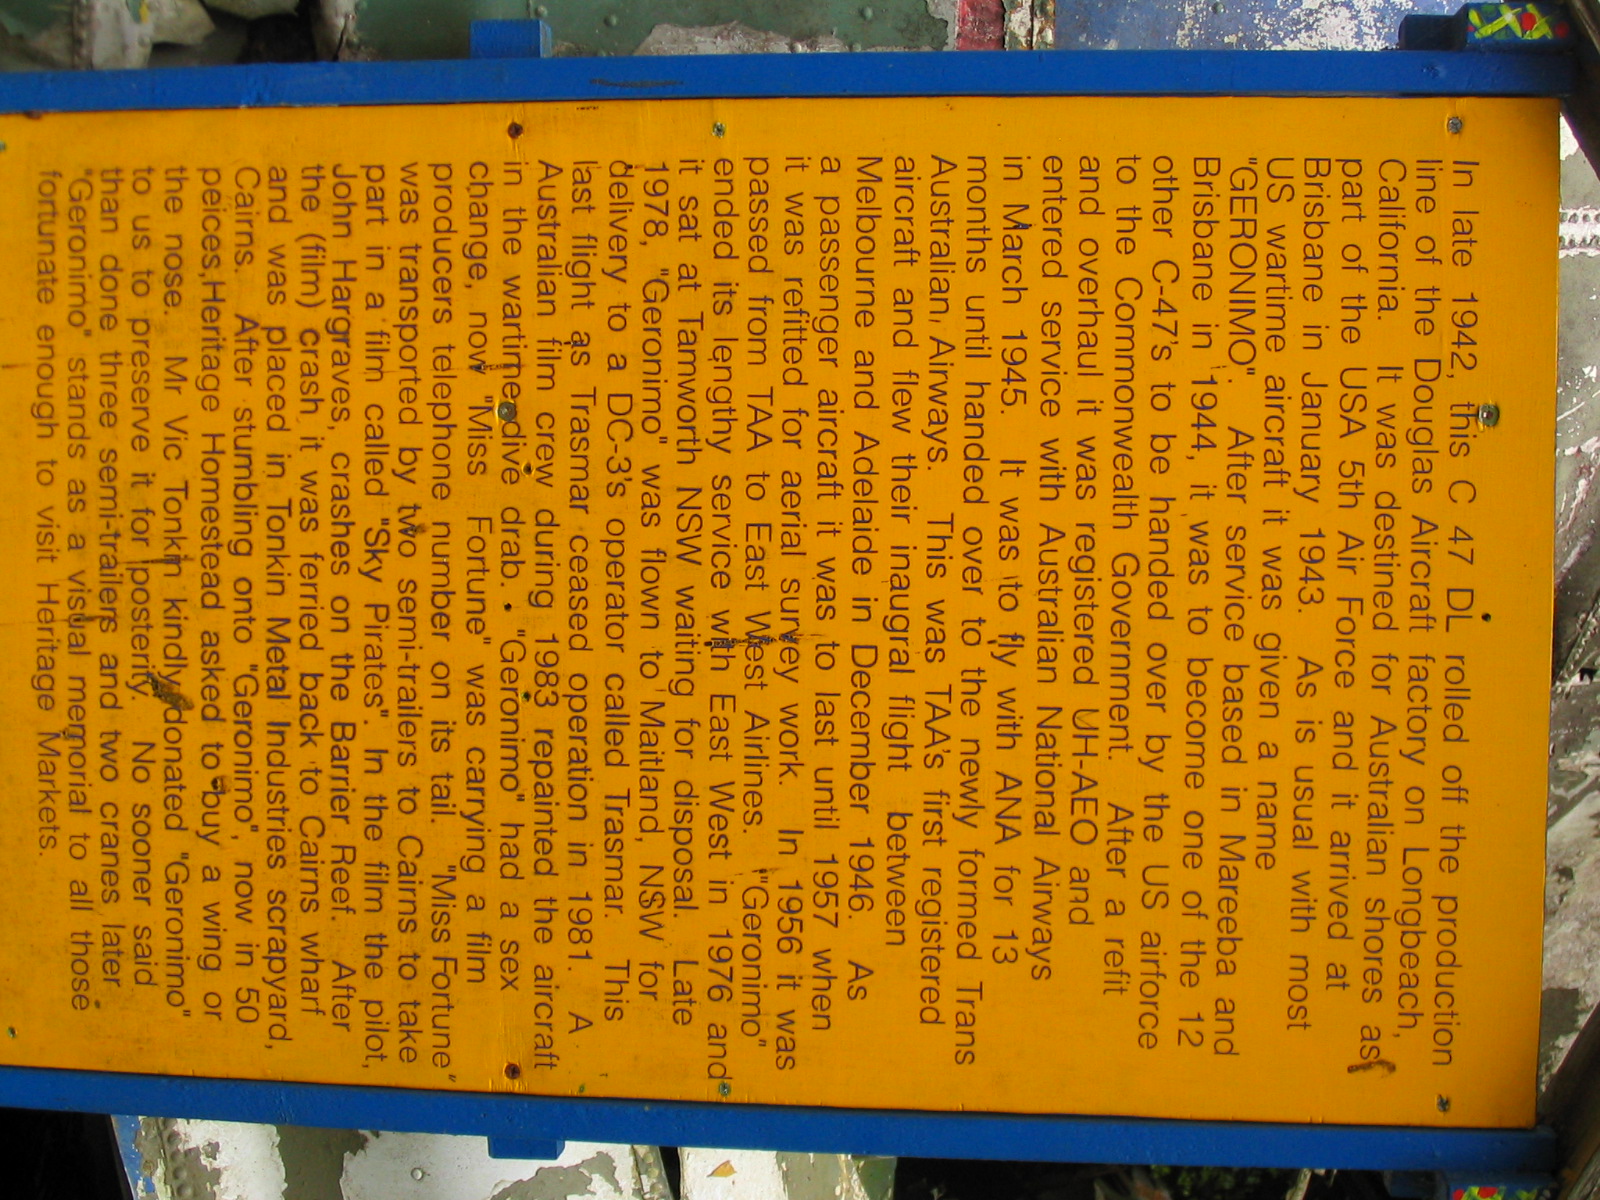 In late 1942, this C 47 DL rolled off the production
line of the Douglas Aircraft factory on Longbeach,
California. It was destined for Australian shores as
part of the USA 5th Air Force and it arrived at
Brisbane in January 1943. As is usual with most
US wartime aircraft it was given a name
"GERONIMO". After service based in Mareeba and
Brisbane in 1944, it was to become one of the 12
other C-47's to be handed over by the US airforce
to the Commonwealth Government. After a refit
and overhaul it was registered UH-AEO and
entered service with Australian National Airways
in March 1945. It was to fly with ANA for 13
months until handed over to the newly formed Trans
Australian Airways. This was TAA's first registered
aircraft and flew their inaugral flight between
Melbourne and Adelaide in December 1946. As
a passenger aircraft it was to last until 1957 when
it was refitted for aerial survey work. In 1956 it was
passed from TAA to East West Airlines. "Geronimo"
ended its lengthy service with East West in 1976 and
it sat at Tamworth NSW waiting for disposal. Late
1978, "Geronimo" was flown to Maitland, NSW for
delivery to a DC-3's operator called Trasmar. This
last flight as Trasmar ceased operation in 1981. A
Australian film crew during 1983 repainted the aircraft
in the wartime olive drab. "Geronimo" had a sex
change, now "Miss Fortune" was carrying a film
producers telephone number on its tail. "Miss Fortune"
was transported by two semi-trailers to Cairns to take
part in a film called "Sky Pirates". In the film the pilot,
John Hargraves, crashes on the Barrier Reef. After
the (film) crash it was ferried back to Cairns wharf
and was placed in Tonkin Metal Industries scrapyard,
Cairns. After stumbling onto "Geronimo", now in 50
peices,Heritage Homestead asked to buy a wing or
the nose. Mr Vic Tonkin kindly donated "Geronimo"
to us to preserve it for posterity. No sooner said
than done three semi-trailers and two cranes later
"Geronimo" stands as a visual memorial to all those
fortunate enough to visit Heritage Markets.